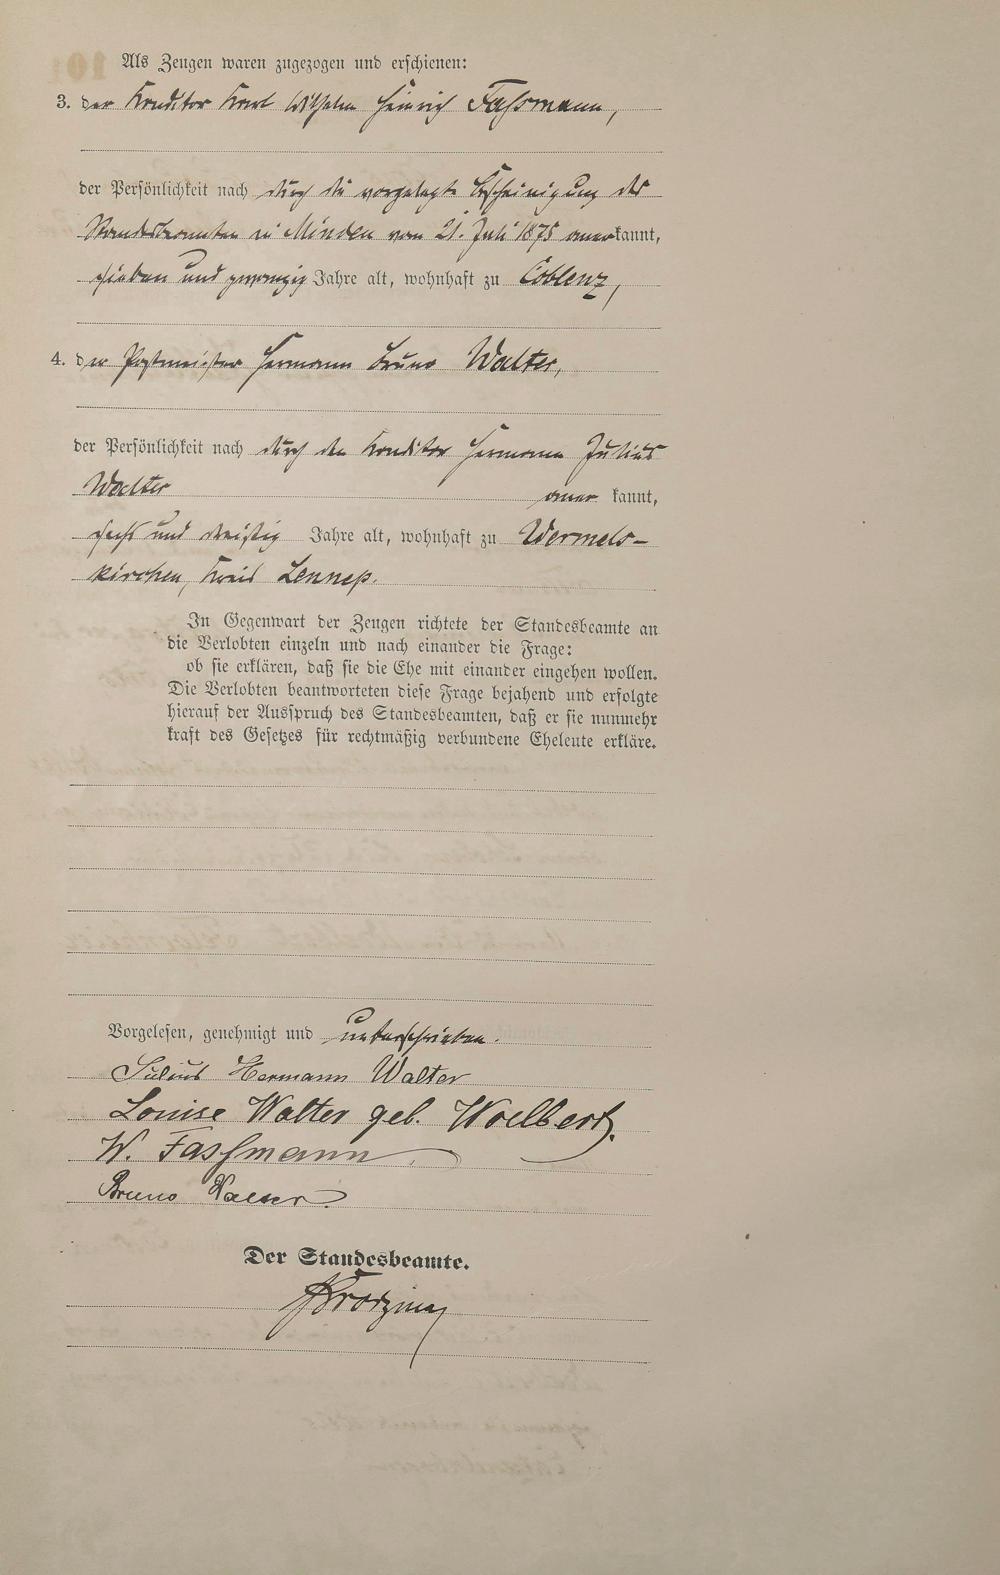 Als Zeugen waren zugezogen und erschienen:
3. der Konditor Karl Wilhelm Heinrich Faßmann,
der Persönlichkeit nach durch die vorgelegte Bescheinigung des
Standesbeamten in Minden vom 21. Juli 1875 anerkannt,
sieben und zwanzig Jahre alt, wohnhaft zu Coblenz,
4. der Postmeister Hermann Bruno Walter,
der Persönlichkeit nach durch den Konditor Hermann Julius
Walter aner kannt,
sechs und dreißig Jahre alt, wohnhaft zu Wermels-
kirchen, Kreis Lennep.
In Gegenwart der Zeugen richtete der Standesbeamte an
die Verlobten einzeln und nach einander die Frage:
ob sie erklären, daß sie die Ehe mit einander eingehen wollen.
Die Verlobten beantworteten diese Frage bejahend und erfolgte
hierauf der Ausspruch des Standesbeamten, daß er sie nunmehr
kraft des Gesetzes für rechtmäßig verbundene Eheleute erkläre.
Vorgelesen, genehmigt und unterschrieben.
Julius Hermann Walter
Louise Walter geb. Woelbert.
W. Faßmann
Bruno Walter
Der Standesbeamte.